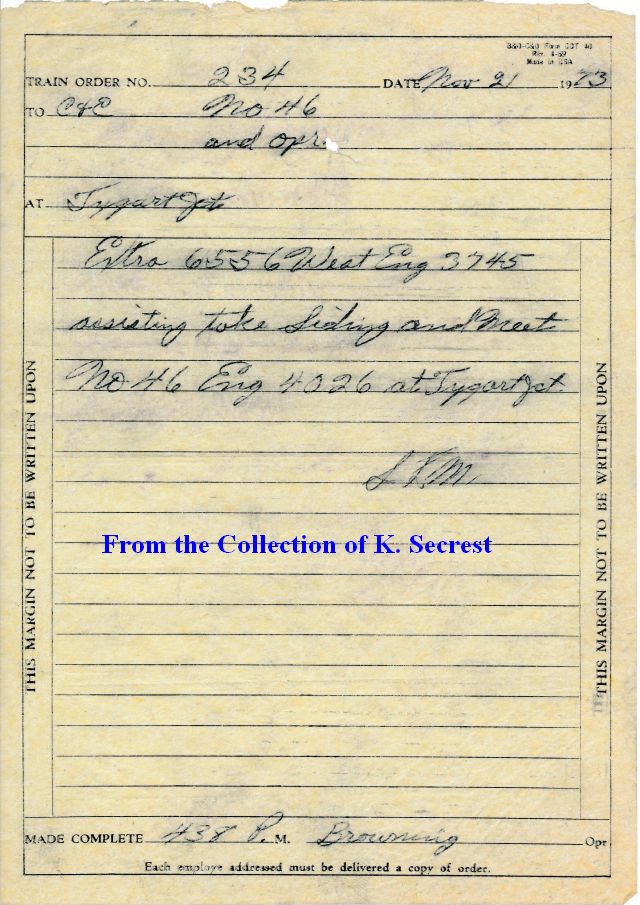 B&O-C&O Form CDT 40
Rev. 4-69
Made in USA
TRAIN ORDER NO. 234 DATE Nov 21 1973
TO C&E No 46
and opr.
AT Tygart Jct.
Extra 6556 West Eng 3745
assisting take Siding and Meet
No 46 Eng 4026 at Tygart Jct.
THIS MARGIN NOT TO BE WRITTEN UPON
THIS MARGIN NOT TO BE WRITTEN UPON
From the Collection of K. Secrest
MADE COMPLETE 438 P. M. Browning Opr
Each employe addressed must be delivered a copy of order.